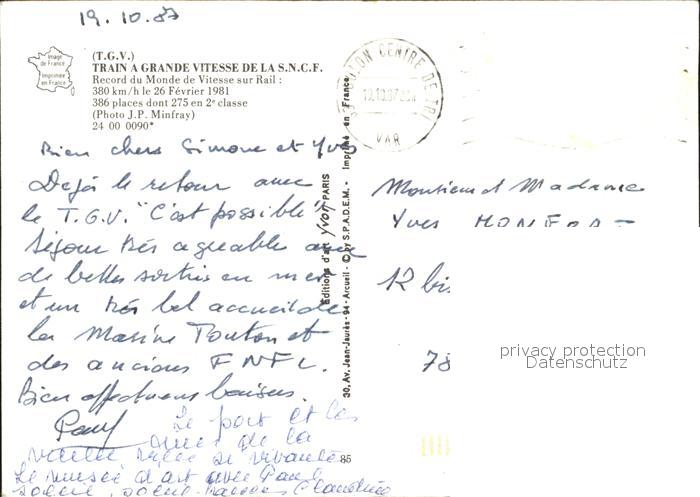 19.10.87
Image
de France
Imprimée
en France
(T.G.V.)
TRAIN A GRANDE VITESSE DE LA S.N.C.F.
Record du Monde de Vitesse sur Rail :
380 km/h le 26 Février 1981
386 places dont 275 en 2e classe
(Photo J.P. Minfray)
24 00 0090*
TOULON CENTRE DE TRI
VAR
Bien chers Simone et Yves
Déjà le retour avec
le T.G.V. "C'est possible"
Séjour très agréable avec
de belles sorties en mer
et un très bel accueil de
la Marine Toulon et
des anciens F N F L.
Bien affectueux baisers.
Paul
Le port et les
de la
vieille si vivante
Le musée d'art avec Paul
Claudine
Editions d'art yvon PARIS
30, Av. Jean-Jaurès - 94 - Arcueil - © by S.P.A.D.E.M. - Imprimé en France
85
Monsieur et Madame
Yves
12 bis
78
privacy protection
Datenschutz